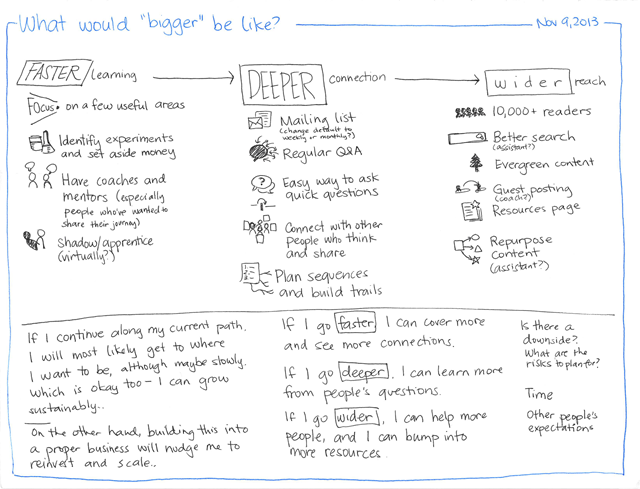 What would "bigger" be like?
Nov 9, 2013
FASTER learning
DEEPER connection
wider reach
Focus: on a few useful areas
Identify experiments
and set aside money
Have coaches and
mentors (especially
people who've wanted to
share their journey)
Shadow/apprentice
(virtually?)
Mailing list
(change default to
weekly or monthly?)
Regular Q&A
Easy way to ask
quick questions
Connect with other
people who think
and share
Plan sequences
and build trails
10,000+ readers
Better search
(assistant?)
Evergreen content
Guest posting
(coach?)
Resources page
Repurpose
content
(assistant?)
If I continue along my current path,
I will most likely get to where
I want to be, although maybe slowly.
which is okay too - I can grow
sustainably..
On the other hand, building this into
a proper business will nudge me to
reinvest and scale..
If I go faster, I can cover more
and see more connections.
If I go deeper, I can learn more
from people's questions.
If I go wider, I can help more
people, and I can bump into
more resources.
Is there a
downside?
What are the
risks to plan for?
Time
Other people's
expectations